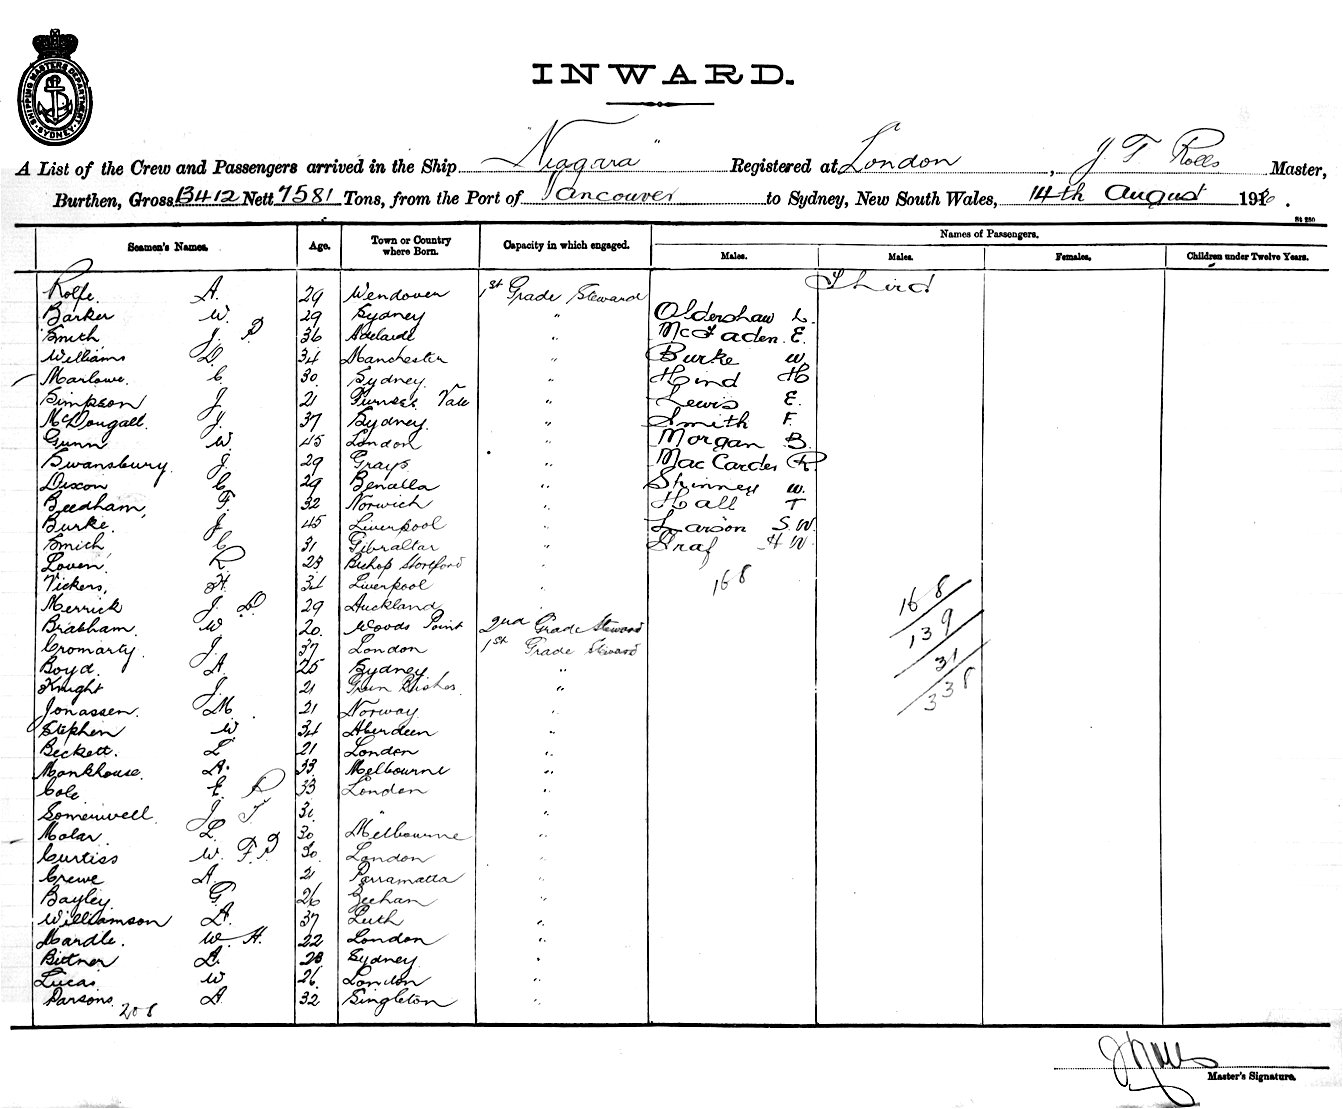 SHIPPING MASTERS DEPARTMENT SYDNEY
INWARD.
A List of the Crew and Passengers arrived in the Ship "Niagara" Registered at London, J. F. Rolls Master,
Burthen, Gross 13412 Nett 7581 Tons, from the Port of Vancouver to Sydney, New South Wales, 14th August 191
St 230
Seamen's Names. Age. Town or Country where Born. Capacity in which engaged. Names of Passengers.
Males. Males. Females. Children under Twelve Years.
Third
Rolfe. A. 29 Wendover 1st Grade Steward
Barker W. 29 Sydney " Oldershaw L.
Smith J. P 36 Adelaide " McFaden. E.
Williams D. 34 Manchester " Burke W.
Marlowe. C. 30 Sydney. " Hind H
Simpson J. 21 Vale " Lewis E.
McDougall. J. 37 Sydney. " Smith F.
Gunn W. 45 London " Morgan B.
Swansbury. J. 29 Grays " R.
Dixon C. 29 Benalla " Skinner W.
Beedham, F. 32 Norwich " Hall T
Burke. J. 45 Liverpool " Larson S.W.
Smith C. 31 Gibraltar " Graf H W.
Loven R. 23 Bishop Stortford "
168
Vickers, H. 34 Liverpool "
Merrick J. D. 29 Auckland "
168
Brabham. W 20. Woods Point 2nd Grade Steward
139
Cromarty. J. 37 London 1st Grade Steward
31
Boyd. A. 25 Sydney "
338
Knight J. 21 "
Jonassen. M. 21 Norway "
Stephen W 34 Aberdeen "
Beckett. L 21 London "
Monkhouse. A. 33 Melbourne "
Cole E. R 33 London "
Somerwell. J. T 31 " "
Molar. L. 30 Melbourne "
Curtiss W. F.P 30. London "
Crewe A. 21 Parramatta "
Bayley. G. 26 Zeehan "
Williamson A. 37 Leith "
Mardle. W. H. 22 London "
Bitner A. 28 Sydney "
Lucas. W 26. London "
Parsons. A. 32 Singleton "
208
Master's Signature.